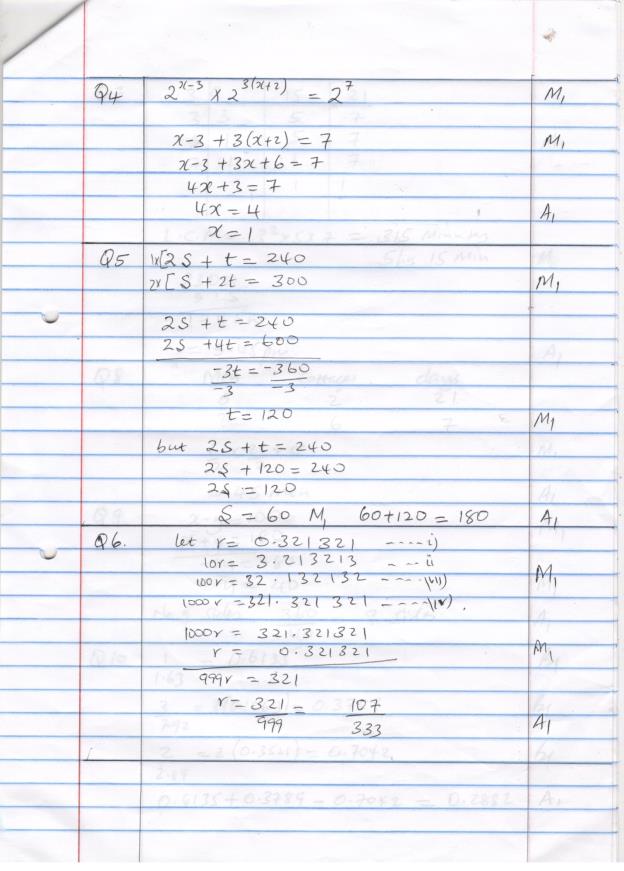 Q4 2^{x-3} × 2^{3(x+2)} = 2^7 M1
x-3 + 3(x+2) = 7 M1
x-3 + 3x+6 = 7
4x+3 = 7
4x = 4 A1
x = 1
Q5 1x[2S + t = 240
2x[S + 2t = 300 M1
2S + t = 240
2S + 4t = 600
-3t = -360
-3 -3
t = 120 M1
but 2S + t = 240
2S + 120 = 240
2S = 120
S = 60 M1 60+120 = 180 A1
Q6. let r = 0.321321 ----- i)
10r = 3.213213 ---- ii
100r = 32.132132 ---- iii) M1
1000r = 321.321321 ---- iv).
1000r = 321.321321
r = 0.321321 M1
999r = 321
r = 321/999 = 107/333 A1